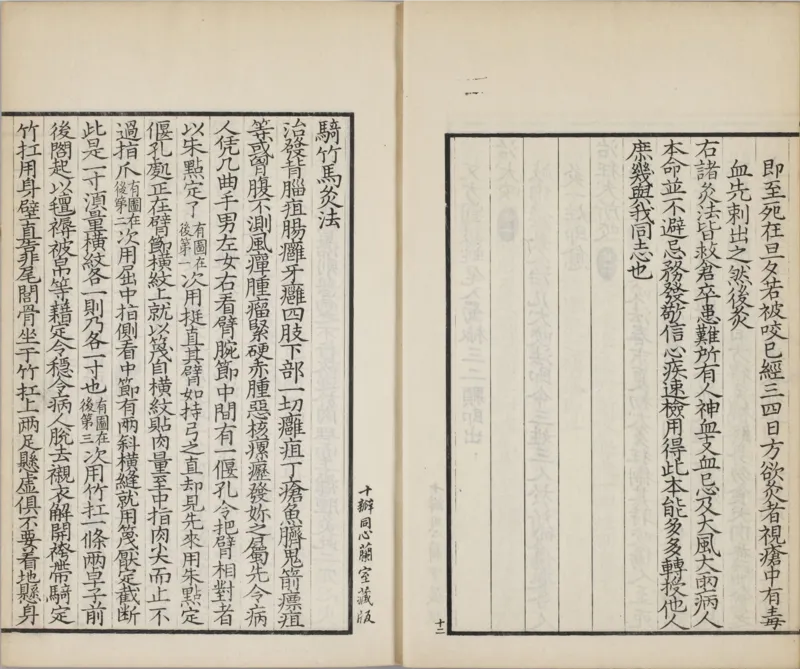 即至死在旦夕若被咬已經三四日方欲灸者視瘡中有毒
血先刺出之然後灸
右諸灸法皆救倉卒患難所有人神血支血忌及大風大雨病人
本命並不避忌務發敬信心疾速檢用得此本能多多轉授他人
庶幾與我同志也
十二
十瓣同心蘭室藏版
騎竹馬灸法
治發背腦疽腸癰牙癰四肢下部一切癰疽丁瘡魚臍鬼箭瘭疽
等或胷腹不測風癉腫瘤緊硬赤腫惡核瘰癧發妳之屬先令病
人凭几曲手男左女右看臂腕節中間有一偃孔令把臂相對者
以朱點定了有圖在後第一次用挺直其臂如持弓之直却見先來用朱點定
偃孔處正在臂節橫紋上就以篾自橫紋貼肉量至中指肉尖而止不
過指爪有圖在後第二次用屈中指側看中節有兩斜橫縫就用篾壓定截斷
此是一寸須量橫紋各一則乃各一寸也有圖在後第三次用竹扛一條兩旱子前
後閣起以氊褥被帛等藉定令穩令病人脫去襯衣解開袴帶騎定
竹扛用身壁直靠尾閭骨坐于竹扛上兩足懸虛俱不要着地懸身